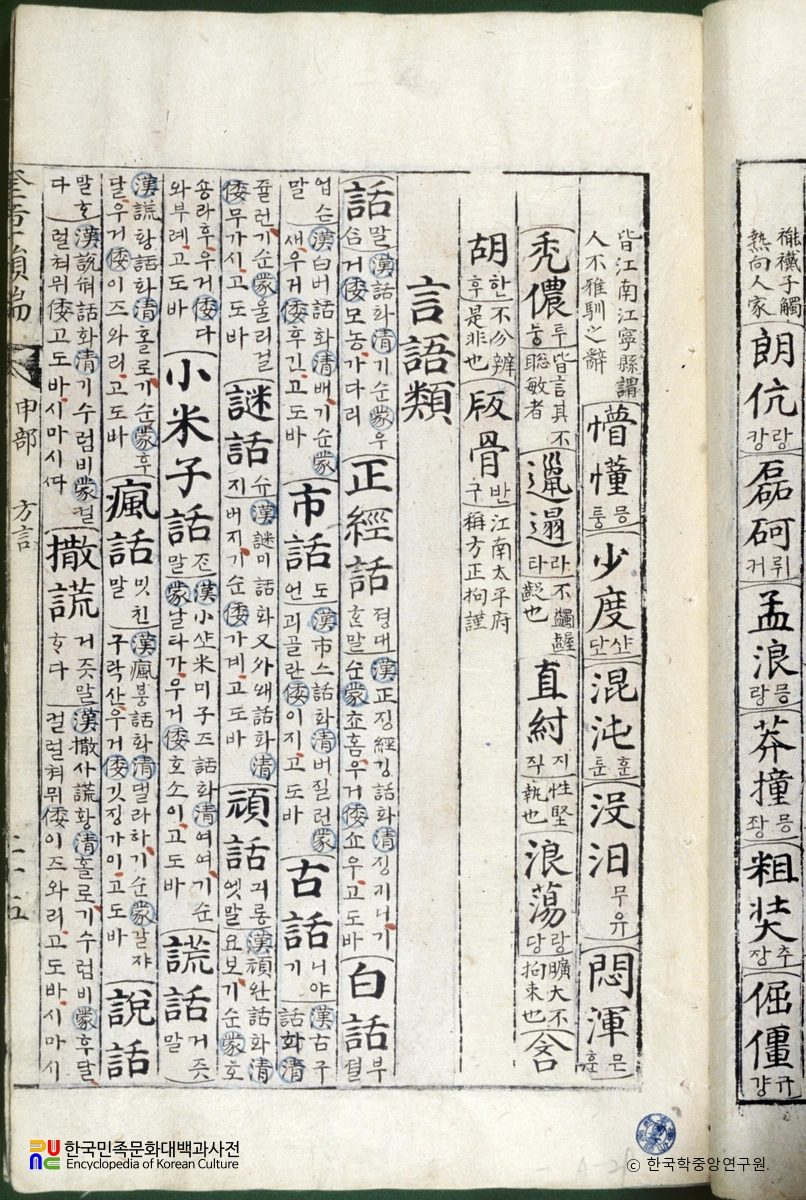 褦襶子觸熱向人家 朗伉 랑캉 磊砢 뤼커 孟浪 믕랑 莽撞 粗奘 추장 倔僵 규걍
皆江南江寧縣謂人不雅馴之辭 懵懂 믕둥 少度 混沌 훈툰 没汨 무유 悶渾 믄훈
禿儂 투눙 皆言其不聰敏者 邋遢 라타 不齷齪也 直紂 지 性堅執也 浪蕩 랑당 曠大不拘束也 含
胡 한후 不分辨是非也 版骨 반구 江南太平府稱方正拘謹
言語類
話 말 漢 話화 淸 기순 蒙 우 거 倭 모농가다리 正經話 졍대 말 漢 正징經깅話화 淸 징기나기순 蒙 쵸홈우거 倭 쇼우고도바 白話 부졀
업슨말 漢 白버話화 淸 배기순 蒙 새우거 倭 후긴고도바 市話 도언 漢 市스話화 淸 버질런 蒙 괴골란 倭 이지고도바 古話 니야기 漢 古구話화 淸
쥴런기순 蒙 울리걸 倭 무가시고도바 謎話 슈지 漢 謎미話화又外왜話화 淸 버지기순 倭 가계고도바 頑話 긔롱엣말 漢 頑완話화 淸 요보기순 蒙 호
숑라후우거 倭 다와부례고도바 小米子話 말 漢 小米미子즈話화 淸 여여기순 蒙 날타가우거 倭 호소이고도바 謊話 거즛말
漢 謊황話화 淸 홀로기순 蒙 후달우거 倭 이즈와리고도바 瘋話 밋친말 漢 瘋붕話화 淸 덜라하기순 蒙 갈쟈구락산우거 倭 깃징가이고도바 說話
말 漢 說話화 淸 기수럼비 蒙 걸럴쳐뮈 倭 고도바시마시다 撒謊 거즛말 다 漢 撒사謊황 淸 홀로기수럼비 蒙 후달걸럴쳐뮈 倭 이즈와리고도바시마시
申部 方言 二十五
한국민족문화대백과사전
Encyclopedia of Korean Culture
ⓒ 한국학중앙연구원.